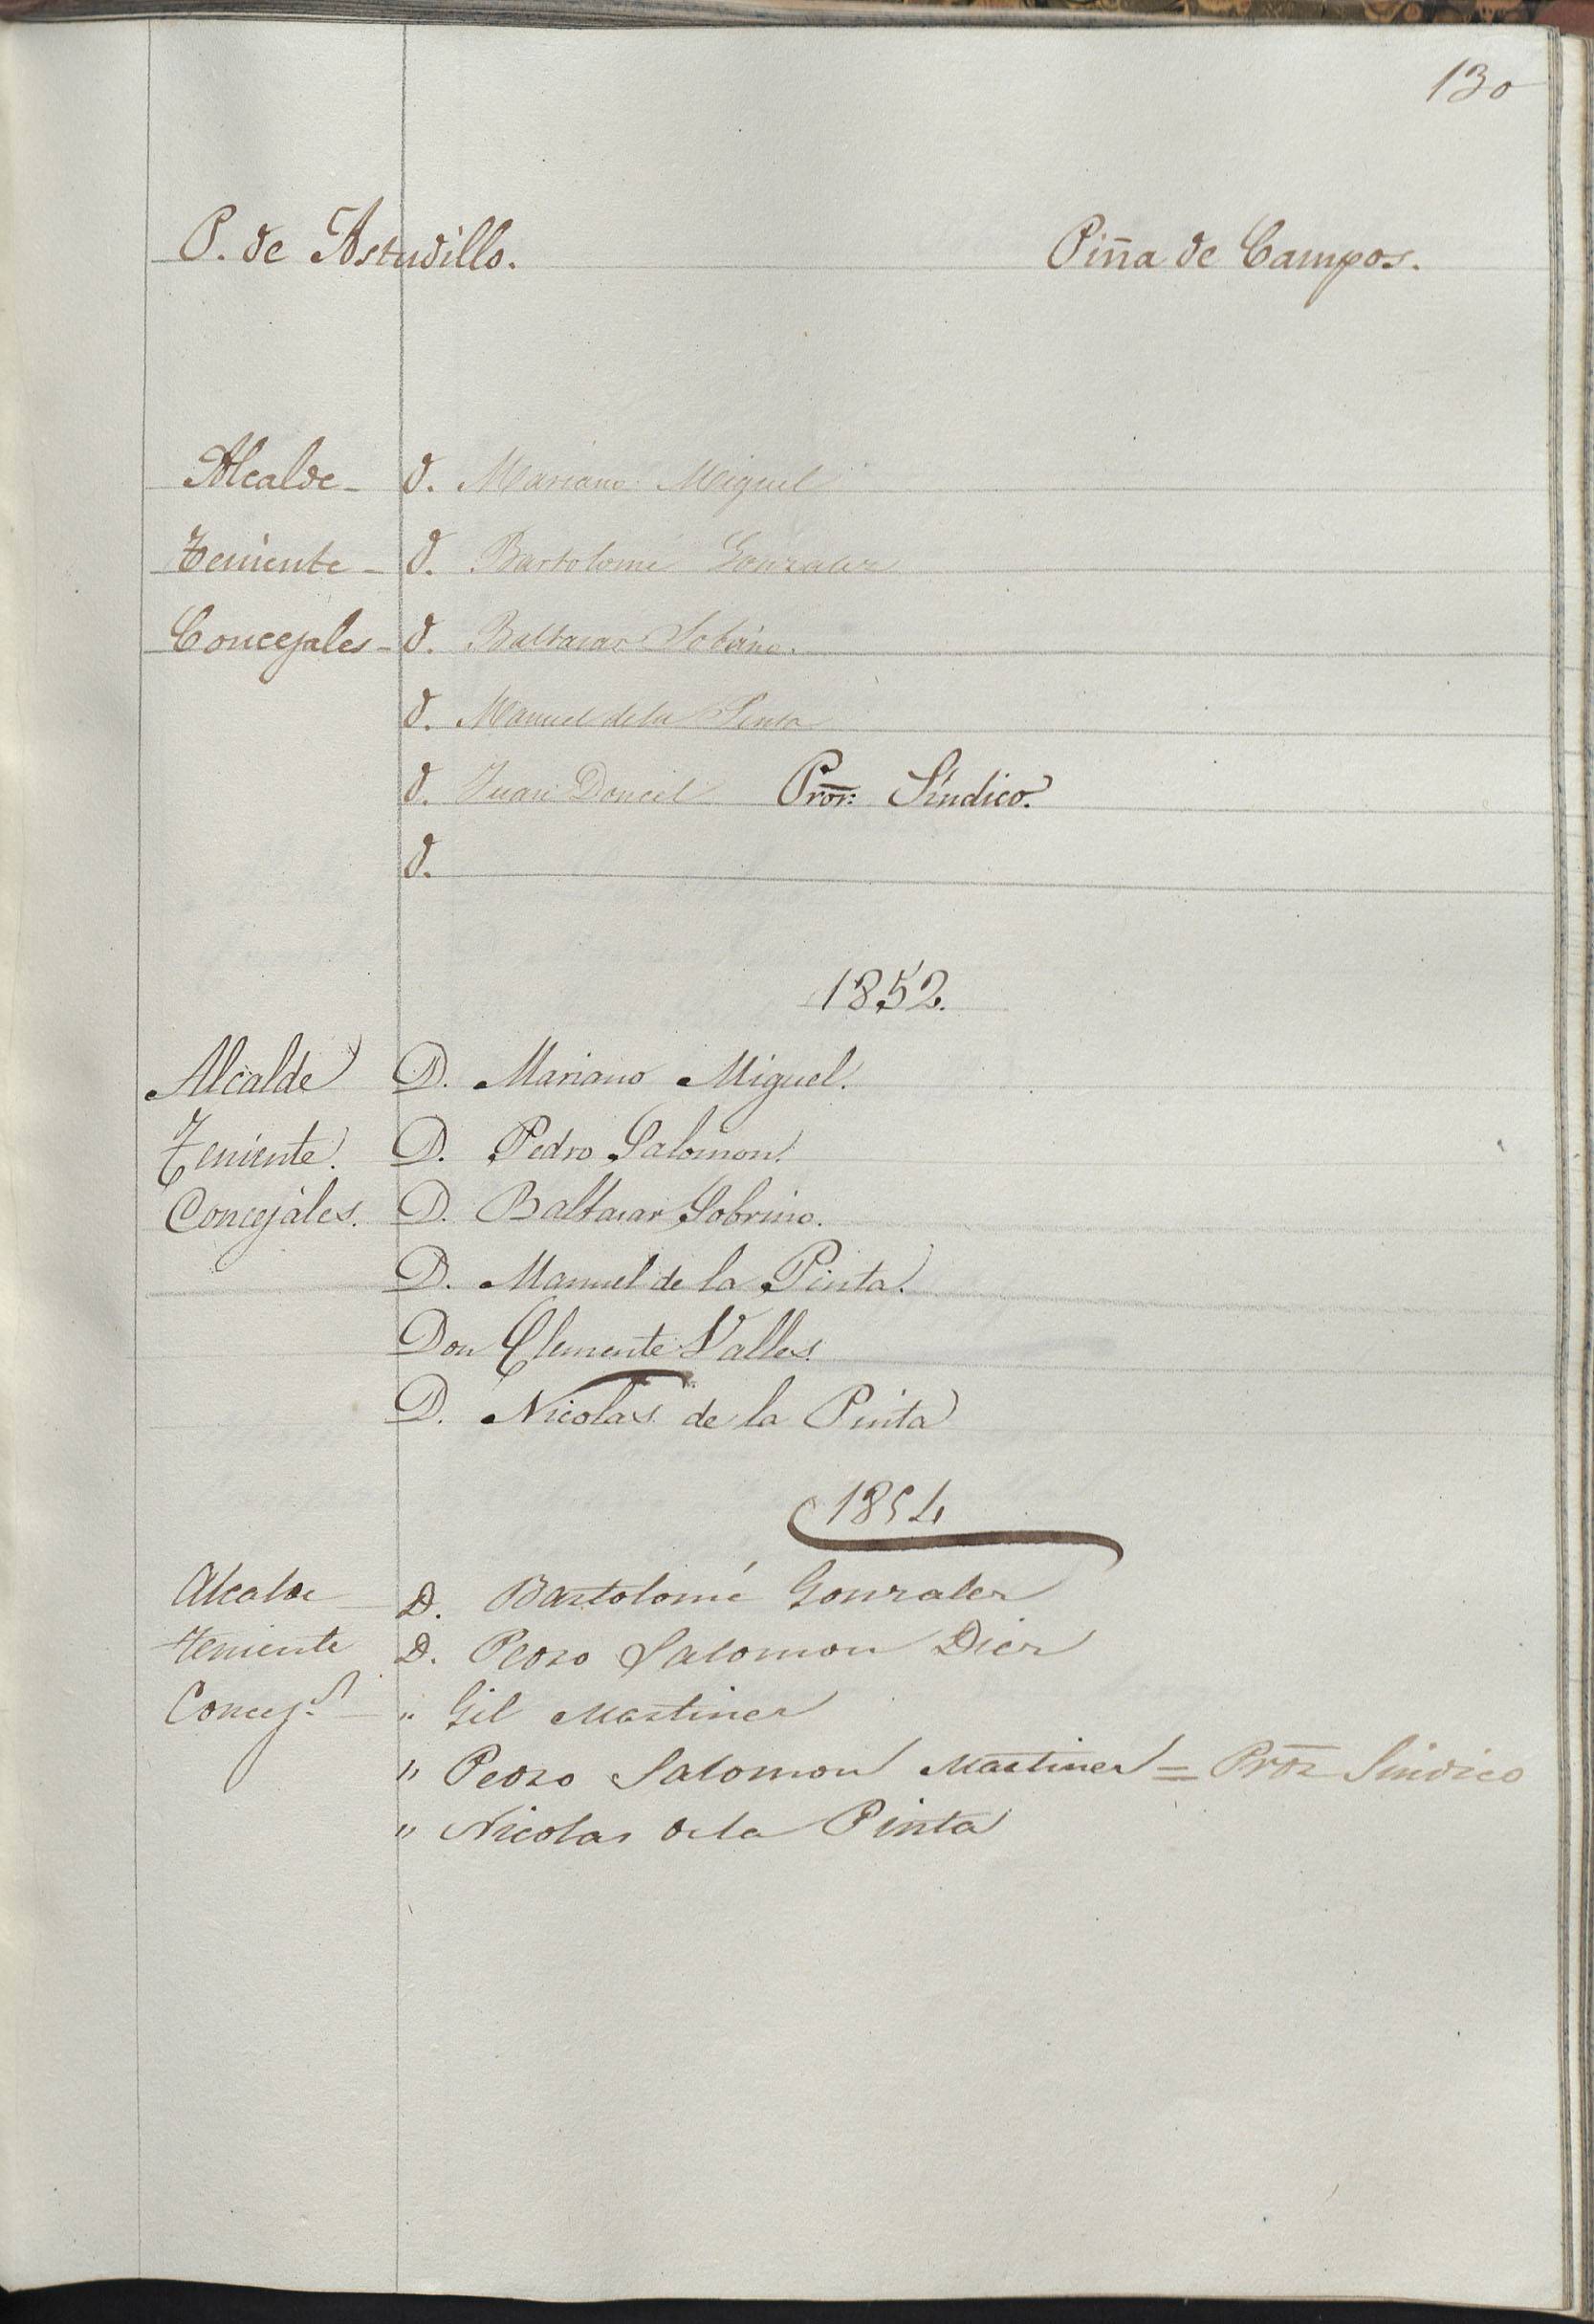 130
P. de Astudillo. Piña de Campos.
Alcalde - D. Mariano Miguel
Teniente - D. Bartolomé Gonzalez
Concejales - D. Baltasar Sobrino.
D. Manuel de la Pinta
D. Juan Doncel Pror: Síndico.
D.
1852.
Alcalde D. Mariano Miguel.
Teniente. D. Pedro Salomon.
Concejales. D. Baltasar Sobrino.
D. Manuel de la Pinta.
Don Clemente Valles.
D. Nicolas de la Pinta
1854
Alcalde D. Bartolomé Gonzalez
Teniente D. Pedro Salomon Diez
Concej.s " Gil Martinez
" Pedro Salomon Martinez = Pror Sindico
" Nicolas de la Pinta